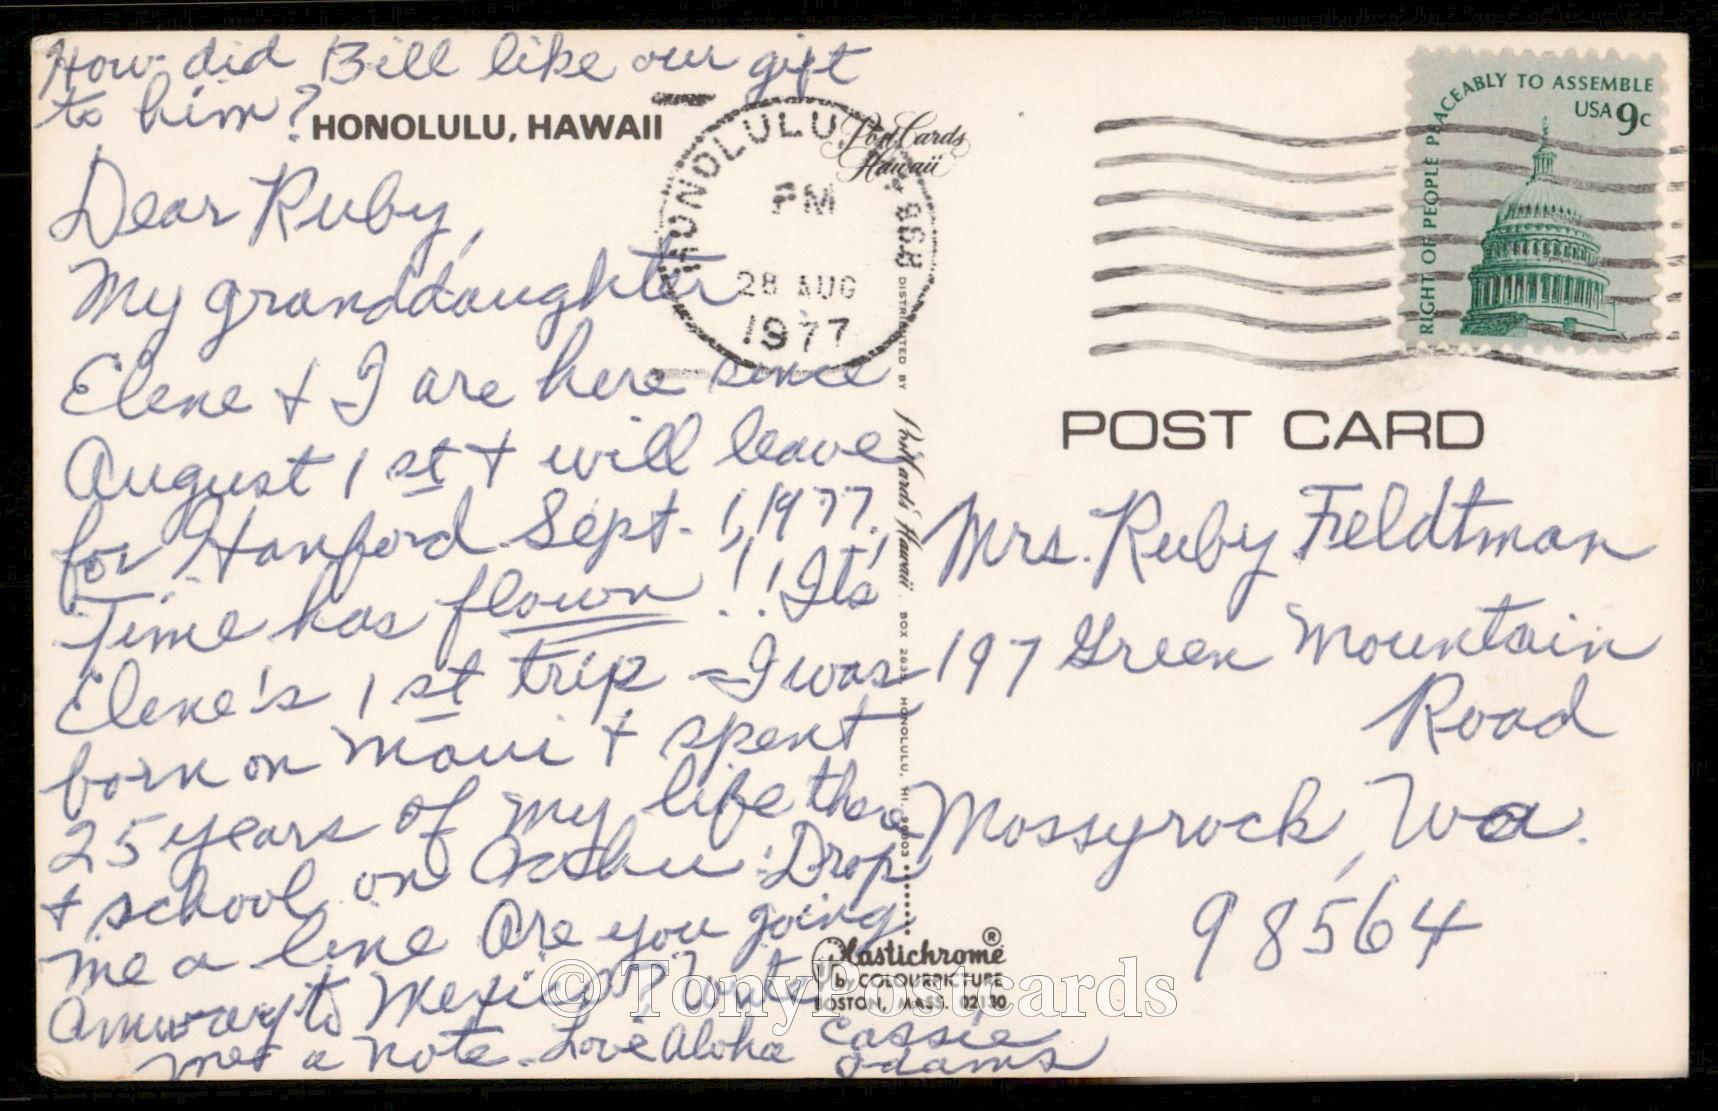 How did Bill like our gift
to him?
HONOLULU, HAWAII
Dear Ruby,
My granddaughter
Elene + I are here since
August 1st + will leave
for Hanford Sept. 1, 1977.
Time has flown!! It's
Elene's 1st trip - I was
born on Maui + spent
25 years of my life there
+ school on Oahu. Drop
me a line Are you going
Amway to Mexico? Write
me a note. Love Aloha Cassie
Adams
Post Cards
Hawaii
HONOLULU, HI 968
PM
28 AUG
1977
DISTRIBUTED BY Post Cards Hawaii BOX 2835 HONOLULU, HI. 96803
RIGHT OF PEOPLE PEACEABLY TO ASSEMBLE
USA 9c
POST CARD
Mrs. Ruby Feldtman
197 Green Mountain
Road
Mossyrock, Wa.
98564
Plastichrome®
by COLOURPICTURE
BOSTON, MASS. 02130
© TonyPostcards